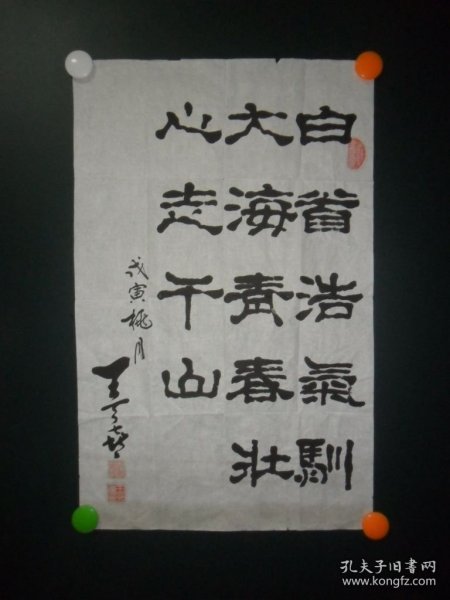 白首浩氣馴
大海青春壯
心志千山
戊寅桃月
王
孔夫子旧书网
www.kongfz.com